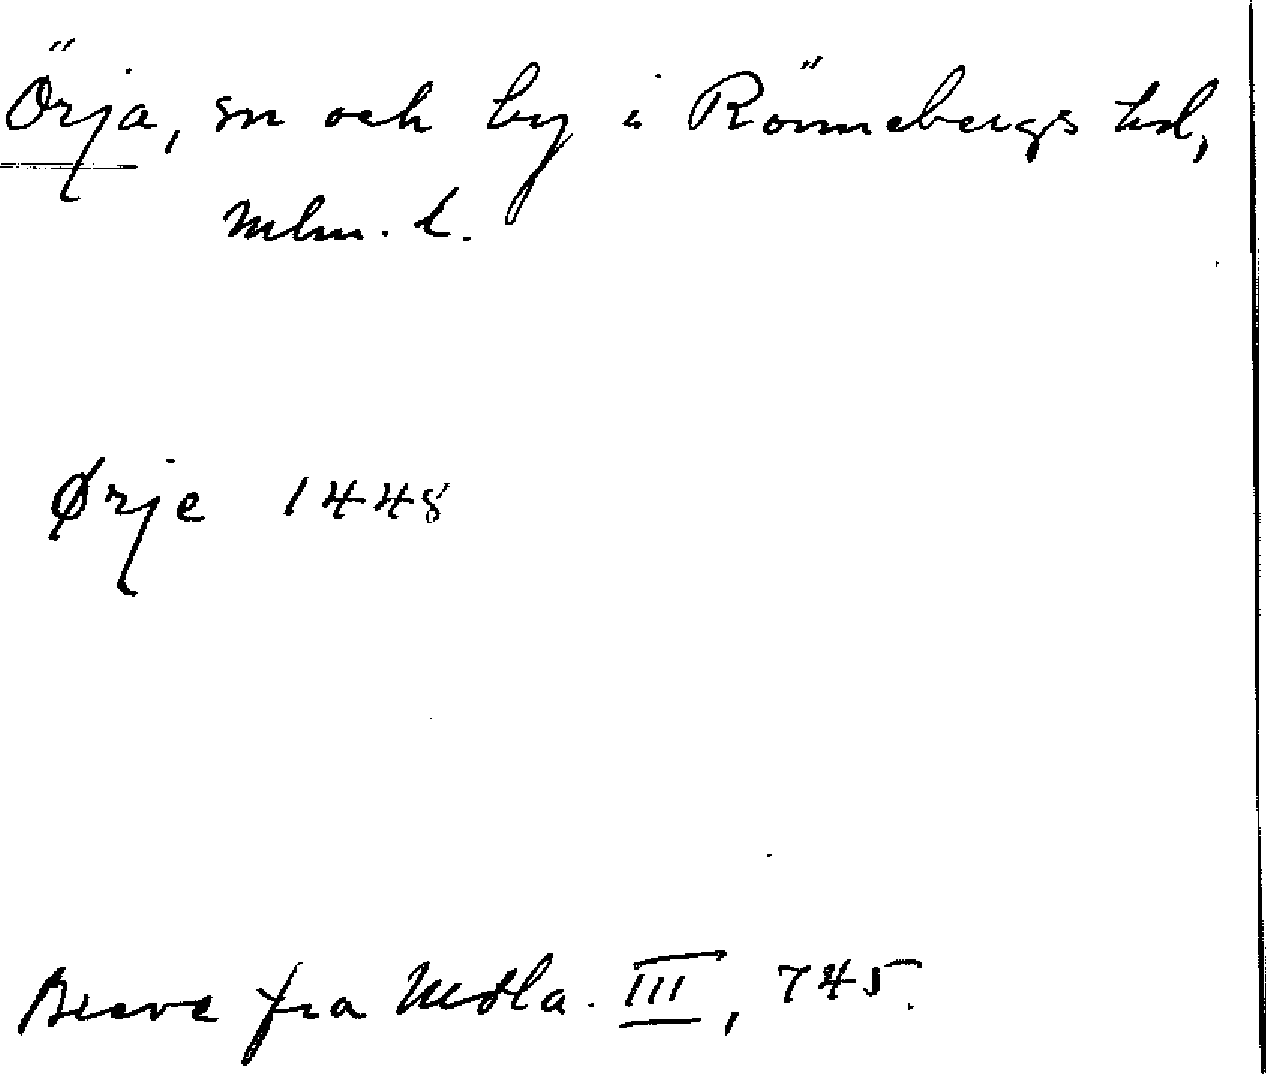 Örja, sn och by i Rönnebergs hd,
Mlm. l.
Ørje 1448
Breve fra Mdla. III, 745.